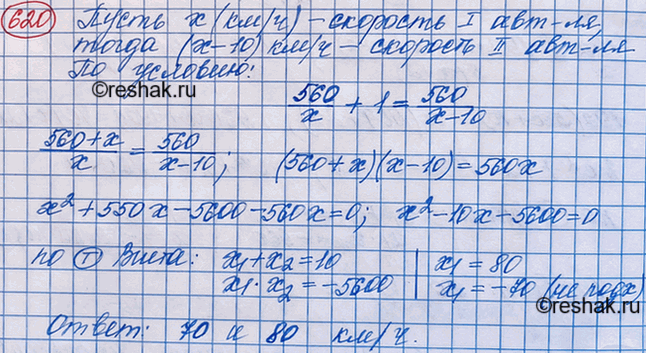 620 Пусть x (км/ч) – скорость I авт-ля,
тогда (x-10) км/ч – скорость II авт-ля
По условию:
©reshak.ru
560/x + 1 = 560/(x-10)
(560+x)/x = 560/(x-10); (560+x)(x-10)=560x
x² + 550x - 5600 - 560x = 0; x² - 10x - 5600 = 0
по Т Виета: x₁+x₂=10 | x₁=80
x₁·x₂=-5600 | x₁=-70 (не подх)
©reshak.ru
Ответ: 70 и 80 км/ч.